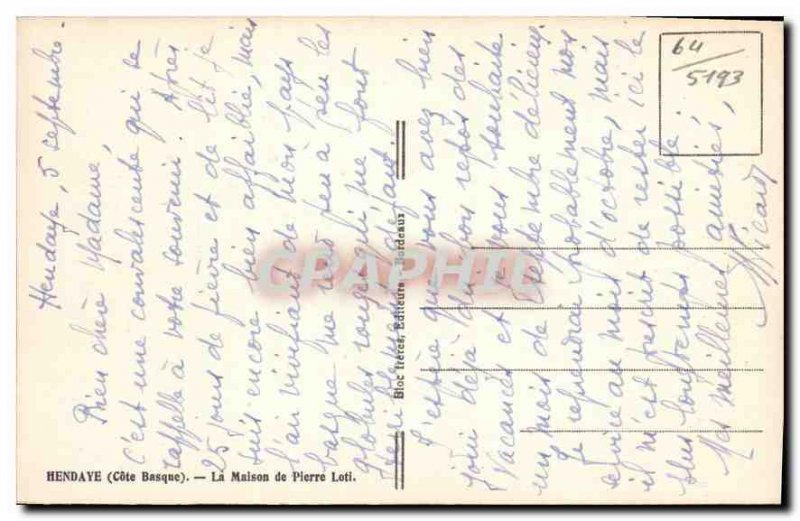 Hendaye, 5 septembre.
Bien chère Madame,
c'est une convalescente qui se
rappelle à votre souvenir. Après
25 jours de fièvre et de lit je
suis encore bien affaiblie, mais
l'air vivifiant de mois pays
basque me rend peu à peu les
globules rouges qui me font
J'espère que vous avez bien
joui déjà du bon repos des
vacances et je vous souhaite
un mois de septembre délicieux.
Je reprendrai probablement mon
service au mois d'octobre, mais
il m'est prescrit de rester ici le
plus longtemps possible.
Mes meilleures amitiés,
64/5193
CPAPHIL
Bloc frères, Editeurs - Bordeaux
HENDAYE (Côte Basque). — La Maison de Pierre Loti.